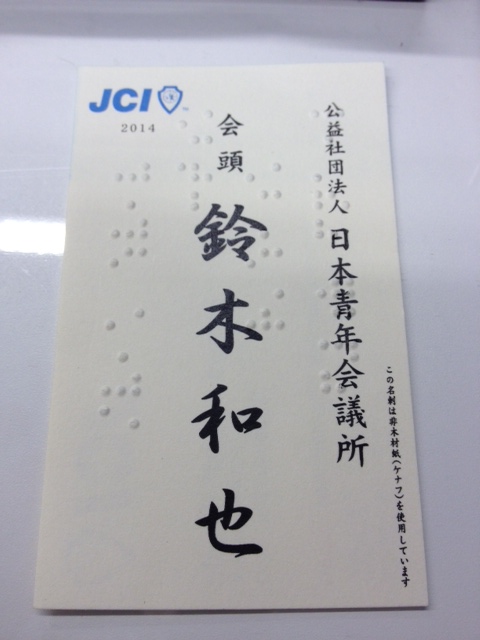 JCI
2014
公益社団法人 日本青年会議所
会頭
鈴木和也
この名刺は非木材紙(ケナフ)を使用しています